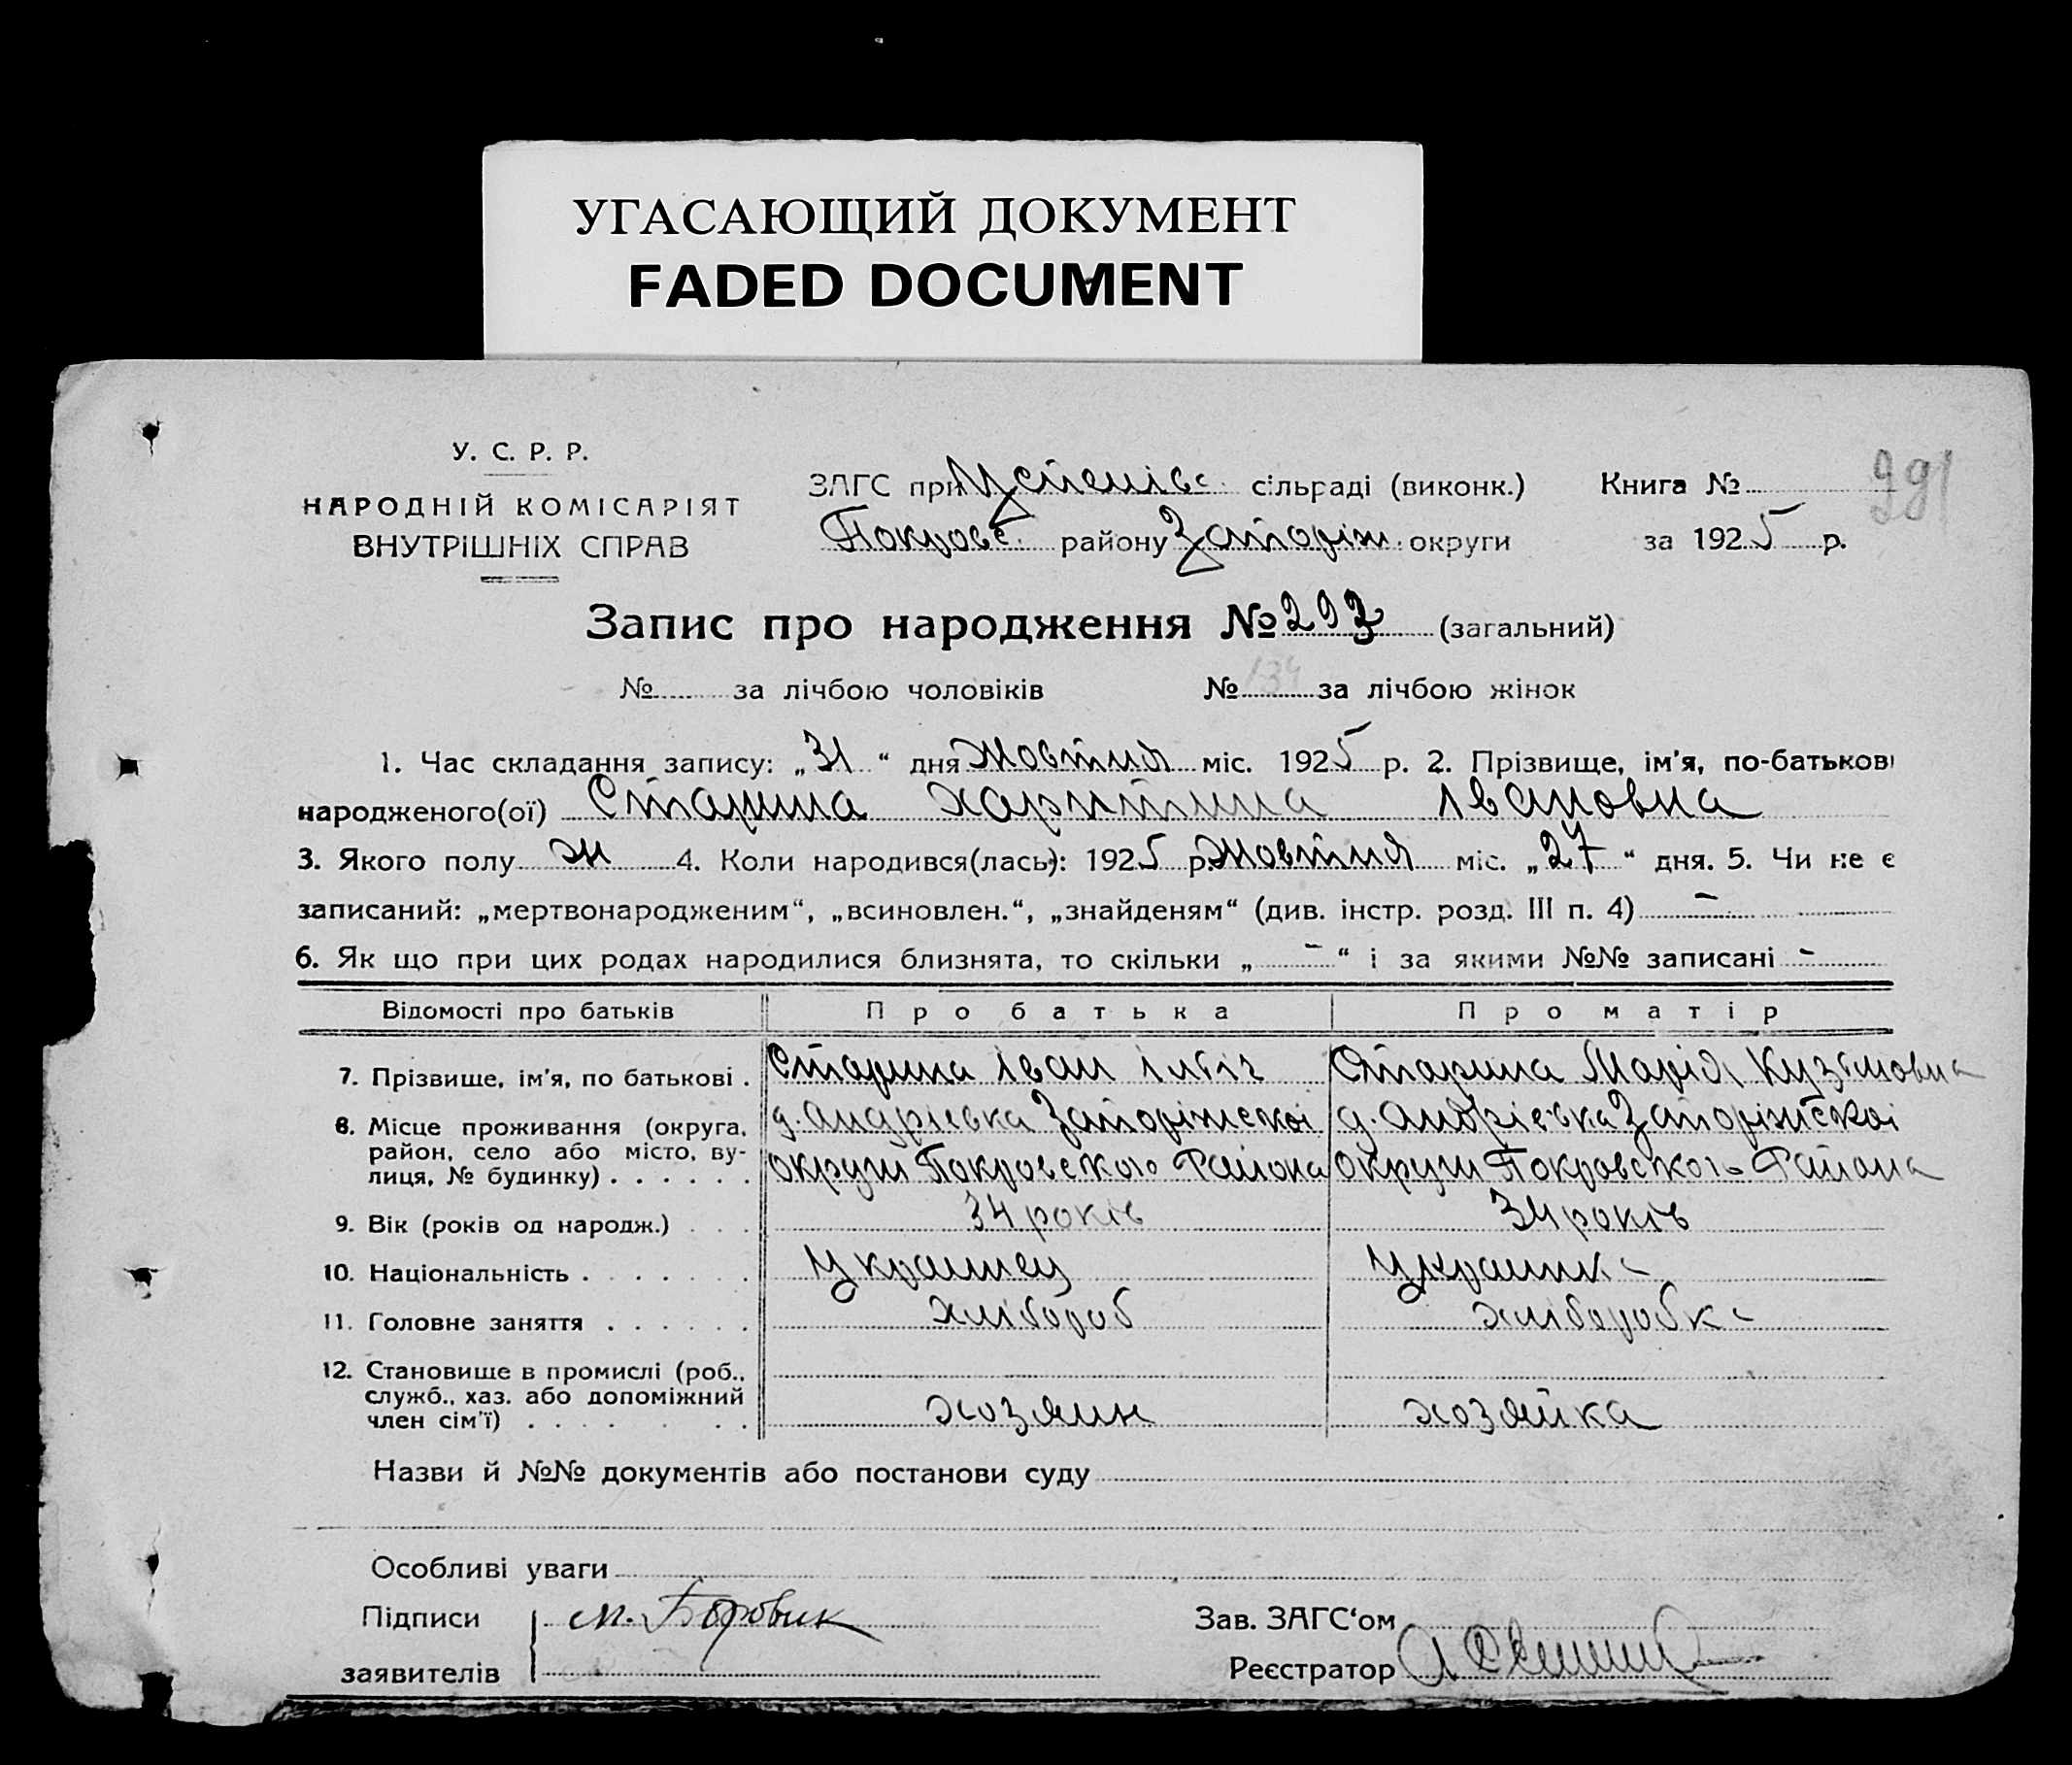 УГАСАЮЩИЙ ДОКУМЕНТ
FADED DOCUMENT
У. С. Р. Р.
НАРОДНІЙ КОМІСАРІЯТ
ВНУТРІШНІХ СПРАВ
ЗАГС при Успенівс. сільраді (виконк.)
Покровс. району Запоріж. округи
Книга №
за 1925 р.
291
Запис про народження № 293 (загальний)
№ за лічбою чоловіків № 134 за лічбою жінок
1. Час складання запису: „31“ дня Жовтня міс. 1925 р. 2. Прізвище, ім'я, по-батькові
народженого(ої) Старина Харитина Івановна
3. Якого полу ж 4. Коли народився(лась): 1925 р. Жовтня міс. „27“ дня. 5. Чи не є
записаний: „мертвонародженим“, „всиновлен.“, „знайденям“ (див. інстр. розд. III п. 4) –
6. Як що при цих родах народилися близнята, то скільки „ – “ і за якими №№ записані –
Відомості про батьків Про батька Про матір
7. Прізвище, ім'я, по батькові . Старина Іван Ілліч Старина Марія Кузьмовна
8. Місце проживання (округа, д. Андрієвка Запоріжскоі д. Андрієвка Запоріжскоі
район, село або місто, ву-
лиця, № будинку) . . . . . . округи Покровского Района округи Покровского Района
9. Вік (років од народж.) . . . 34 років 34 років
10. Національність . . . . . . . Украинец Украинка
11. Головне заняття . . . . . . хлібороб хлiборобка
12. Становище в промислі (роб.,
служб., хаз. або допоміжний
член сім'ї) . . . . . . . хозяин хозяйка
Назви й №№ документів або постанови суду
Особливі уваги
Підписи М. Боровик
заявителів
Зав. ЗАГС‘ом
Реєстратор